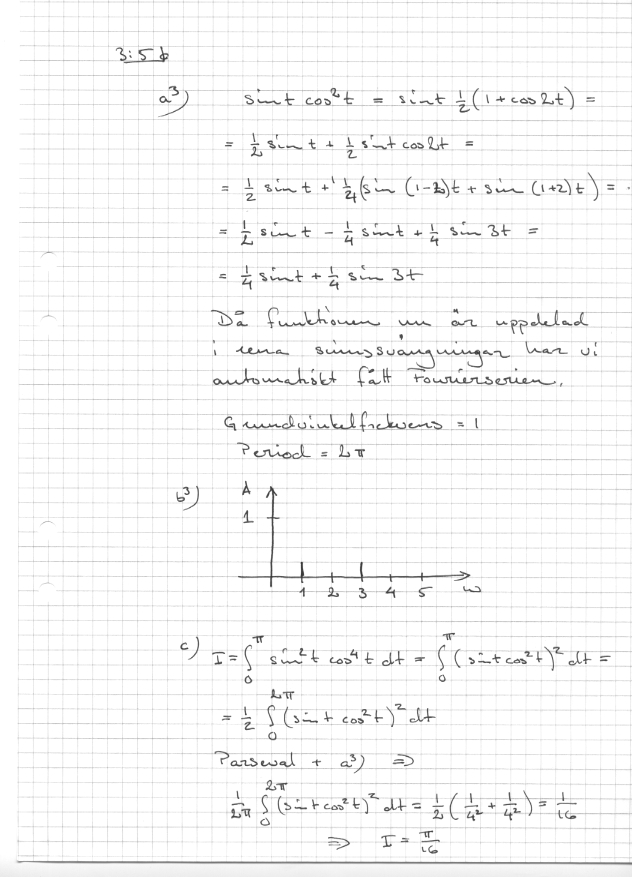 3:5 b
a³) sin t cos²t = sin t ½(1 + cos 2t) =
= ½ sin t + ½ sin t cos 2t =
= ½ sin t + ¼(sin (1-2)t + sin (1+2)t) =
= ½ sin t - ¼ sin t + ¼ sin 3t =
= ¼ sin t + ¼ sin 3t
Då funktionen nu är uppdelad
i rena sinussvängningar har vi
automatiskt fått Fourierserien.
Grundvinkelfrekvens = 1
Period = 2π
b³) A
1
1 2 3 4 5 ω
c) I = ∫₀^π sin²t cos⁴t dt = ∫₀^π (sin t cos²t)² dt =
= ½ ∫₀^2π (sin t cos²t)² dt
Parseval + a³) ⇒
1/2π ∫₀^2π (sin t cos²t)² dt = ½(1/4² + 1/4²) = 1/16
⇒ I = π/16